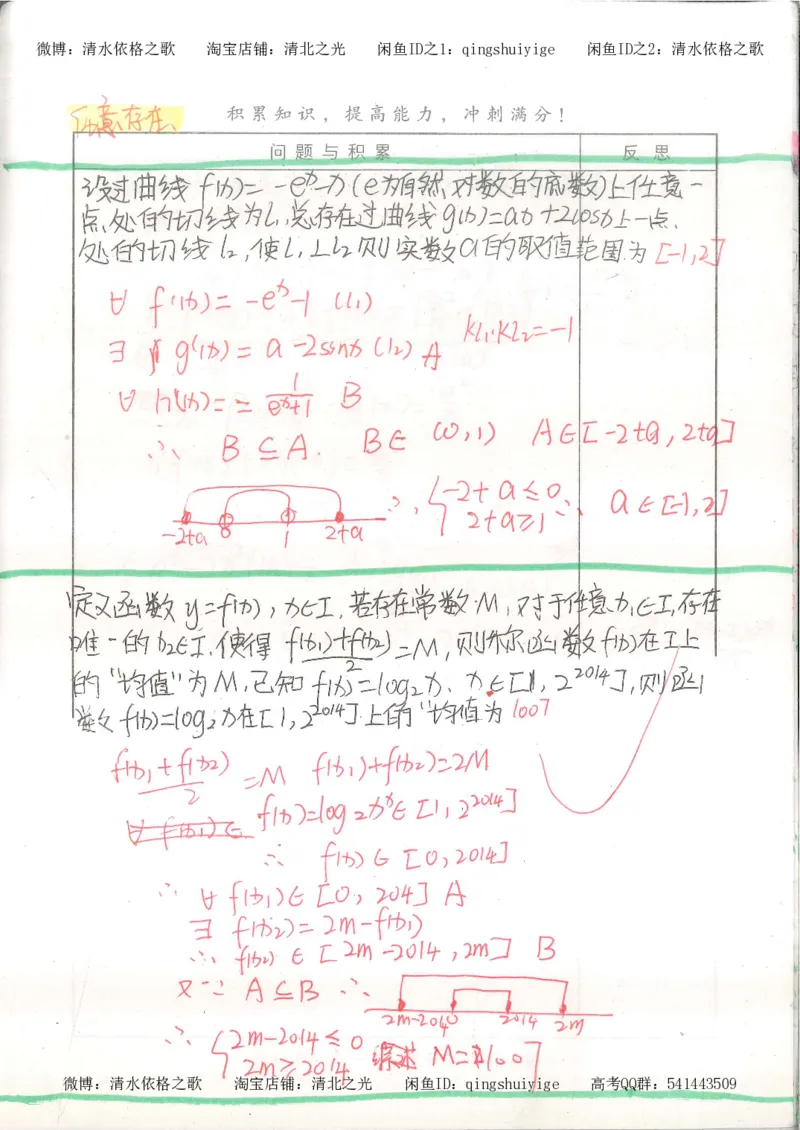 微博：清水依格之歌 淘宝店铺：清北之光 闲鱼ID之1：qingshuiyige 闲鱼ID之2：清水依格之歌
任意存在 积累知识，提高能力，冲刺满分！
问题与积累 反思
设过曲线 f(x)=-eˣ-x(e为自然对数的底数)上任意一
点处的切线为l₁总存在过曲线g(x)=ax+2cosx上一点
处的切线l₂,使l₁⊥l₂则实数a的取值范围为 [-1,2]
∀ f'(x)=-eˣ-1 (l₁)
kl₁·kl₂=-1
∃ g'(x)=a-2sinx(l₂) A
∀ h'(x)== 1/(eˣ+1) B
∴ B⊆A. B∈ (0,1) A∈[-2+a,2+a]
∴ {-2+a≤0 2+a≥1 ∴ a∈[-1,2]
-2+a 0 1 2+a
定义函数y=f(x),x∈I,若存在常数M,对于任意x₁∈I,存在
唯一的x₂∈I,使得 (f(x₁)+f(x₂))/2=M,则称函数f(x)在I上
的“均值”为M,已知f(x)=log₂x、x∈[1,2²⁰¹⁴],则函
数f(x)=log₂x在[1,2²⁰¹⁴]上的“均值为 1007
(f(x₁+f(x₂))/2=M f(x₁)+f(x₂)=2M
∀ f(x₁)∈ f(x)=log₂x x∈[1,2²⁰¹⁴]
∴ f(x)∈[0,2014]
∴ ∀ f(x₁)∈[0,204] A
∃ f(x₂)=2m-f(x₁)
∴ f(x₂)∈[2m-2014,2m] B
又∵ A⊆B ∴
2m-2014 0 2014 2m
∴ {2m-2014≤0
2m≥2014 综述 M=1007
微博：清水依格之歌 淘宝店铺：清北之光 闲鱼ID：qingshuiyige 高考QQ群：541443509